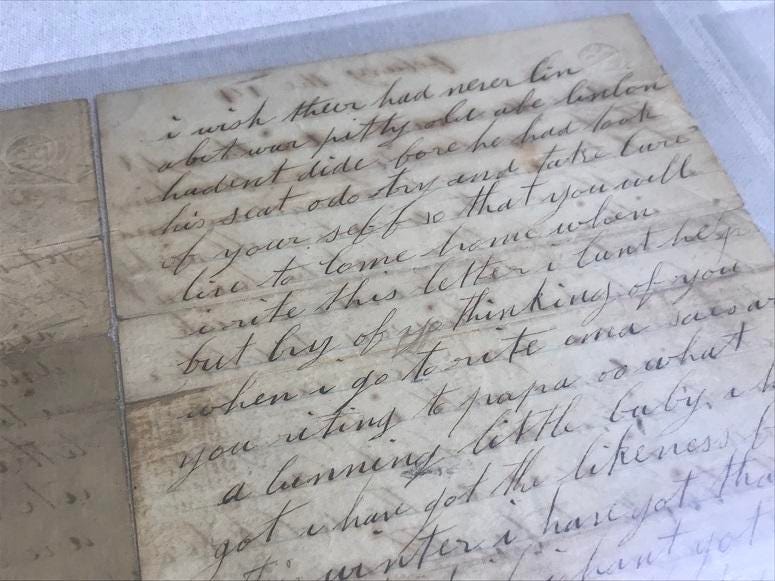 i wish theur had never bin
abut war pitty old abe linclon
hadent dide bore he had took
his seat o do try and take care
of your self so that you will
live to come home when
i rite this letter i cant help
but cry of yo thinking of you
when i go to rite ema saes
you riting to papa oo what
a cunning little baby i h
got i have got the likeness
winter i have got tha
i hant got